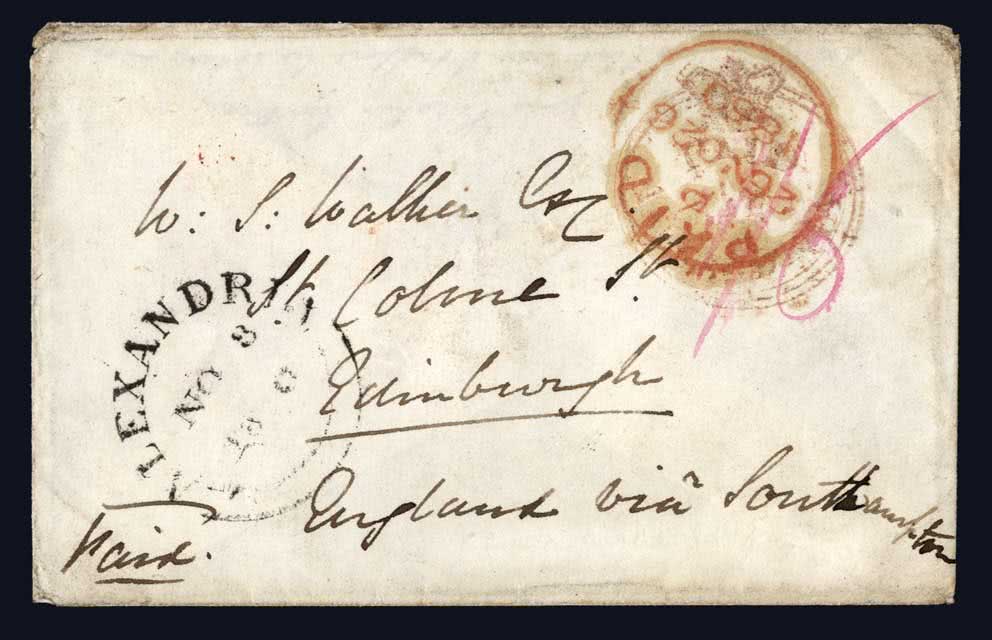 W: S: Walker Esq.
St. Colme St.
Edinburgh
England viâ Southampton
Paid.
LEXANDRIA
NO 8
PAID
26 NO 26
1850
1/6